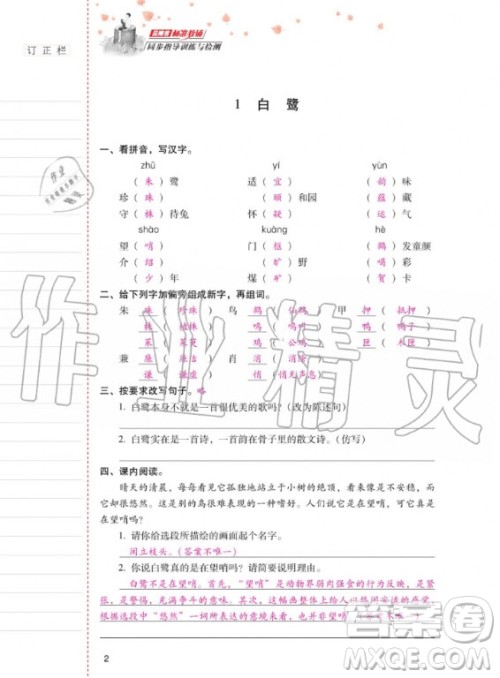 订正栏
同步指导训练与检测
1 白鹭
一、看拼音，写汉字。
zhū yí yùn
（朱）鹭 适（宜） （韵）味
珍（珠） （颐）和园 （蕴）藏
守（株）待兔 怀（疑） （运）气
shào kuàng hè
望（哨） 门（框） （鹤）发童颜
介（绍） （眶） （喝）彩
（少）年 煤（矿） （贺）卡
二、给下列字加偏旁组成新字，再组词。
朱 珠（珍珠） 鸟 鹤 甲 押（抵押）
匣 匠
兼 肖 消
谦（谦虚） 悄（悄无声息）
三、按要求改写句子。略
1. 白鹭本身不就是一首很优美的歌吗？（改为陈述句）
2. 白鹭实在是一首诗，一首韵在骨子里的散文诗。（仿写）
四、课内阅读。
晴天的清晨，每每看见它孤独地站立于小树的绝顶，看来像是不安稳，而
它却很悠然。这是别的鸟很难表现的一种嗜好。人们说它是在望哨，可它真
是在望哨吗？
1. 请你给选段所描绘的画面起个名字。
闲立枝头。（答案不唯一）
2. 你说白鹭真是在望哨吗？说明理由。
白鹭不是在望哨。首先，“望哨”是动物界弱肉强食的行为表现，是
紧张、恐慌、充满争斗的生活状态，这幅画整体给人以闲适安详的感觉，
根据选段文中“悠然”一词所表达的意境来看，也不可能是在望哨。
2
作业精灵
答案卷
MXQE.COM